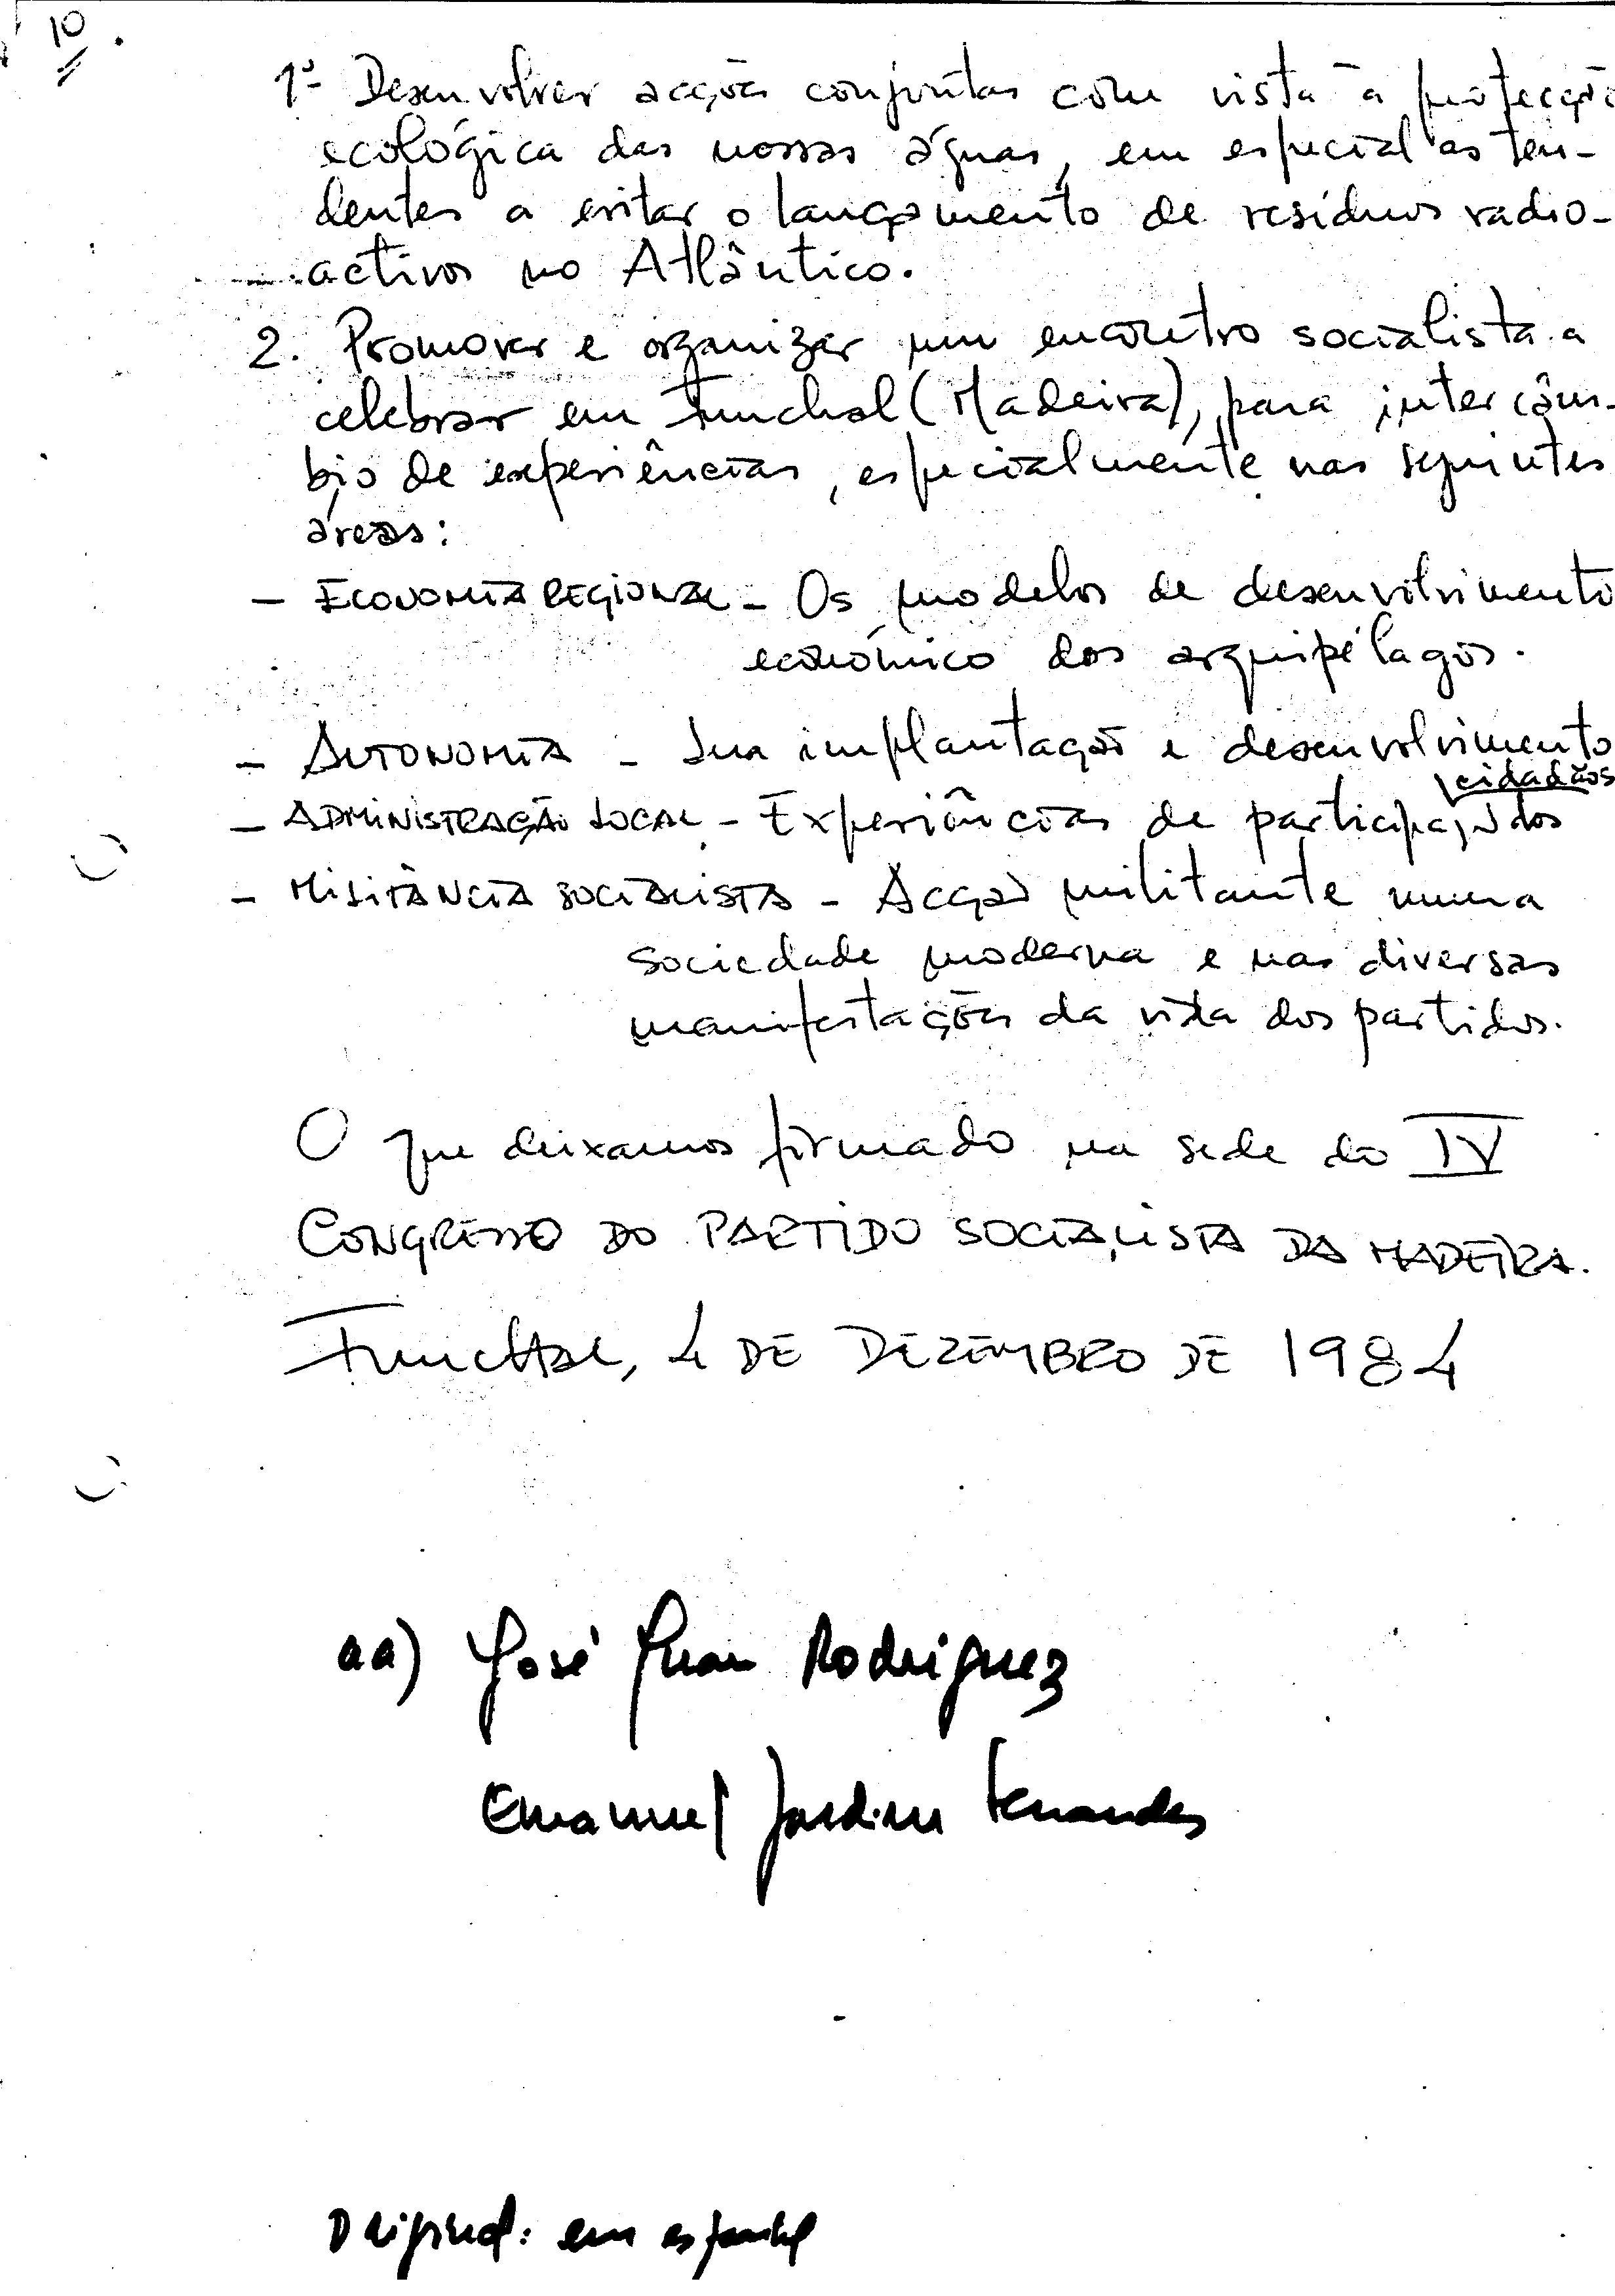 10
1º- Desenvolver acções conjuntas com vista à protecção
ecológica das nossas águas, em especial as ten-
dentes a evitar o lançamento de resíduos radio-
activos no Atlântico.
2. Promover e organizar um encontro socialista a
celebrar em Funchal (Madeira), para intercâm-
bio de experiências, especialmente nas seguintes
áreas:
- ECONOMIA REGIONAL - Os modelos de desenvolvimento
económico dos arquipélagos.
- AUTONOMIA - Sua implantação e desenvolvimento
cidadãos
- ADMINISTRAÇÃO LOCAL - Experiências de participação dos
- MILITÂNCIA SOCIALISTA - Acção militante numa
sociedade moderna e nas diversas
manifestações da vida dos partidos.
O que deixamos firmado na sede do IV
CONGRESSO DO PARTIDO SOCIALISTA DA MADEIRA.
FUNCHAL, 4 DE DEZEMBRO DE 1984
aa) José Juan Rodriguez
Emanuel Jardim Fernandes
Original: em espanhol